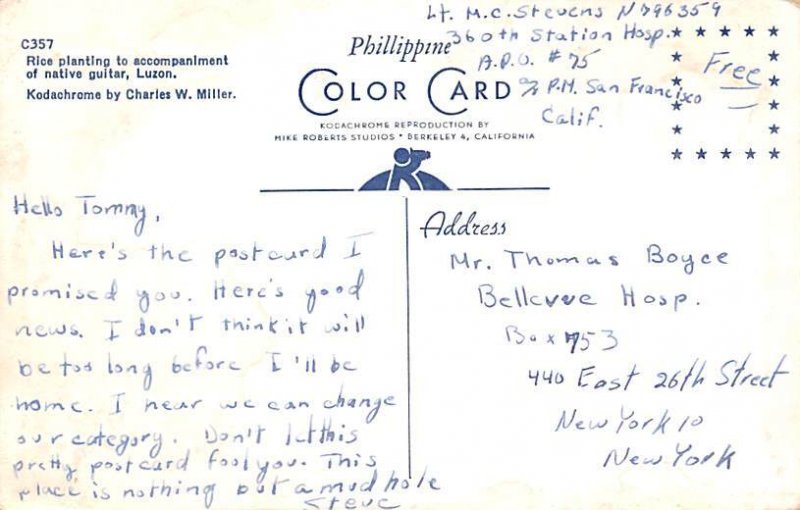 C357
Rice planting to accompaniment
of native guitar, Luzon.
Kodachrome by Charles W. Miller.
Phillippine
COLOR CARD
KODACHROME REPRODUCTION BY
MIKE ROBERTS STUDIOS • BERKELEY 4, CALIFORNIA
Lt. M.C. Stevens N796359
360th Station Hosp.
A.P.O. #75
c/o P.M. San Francisco
Calif.
Free
Hello Tommy,
Here's the postcard I
promised you. Here's good
news. I don't think it will
be too long before I'll be
home. I hear we can change
our category. Don't let this
pretty postcard fool you. This
place is nothing but a mud hole
Steve
Address
Mr. Thomas Boyce
Bellevue Hosp.
Box 753
440 East 26th Street
New York 10
New York